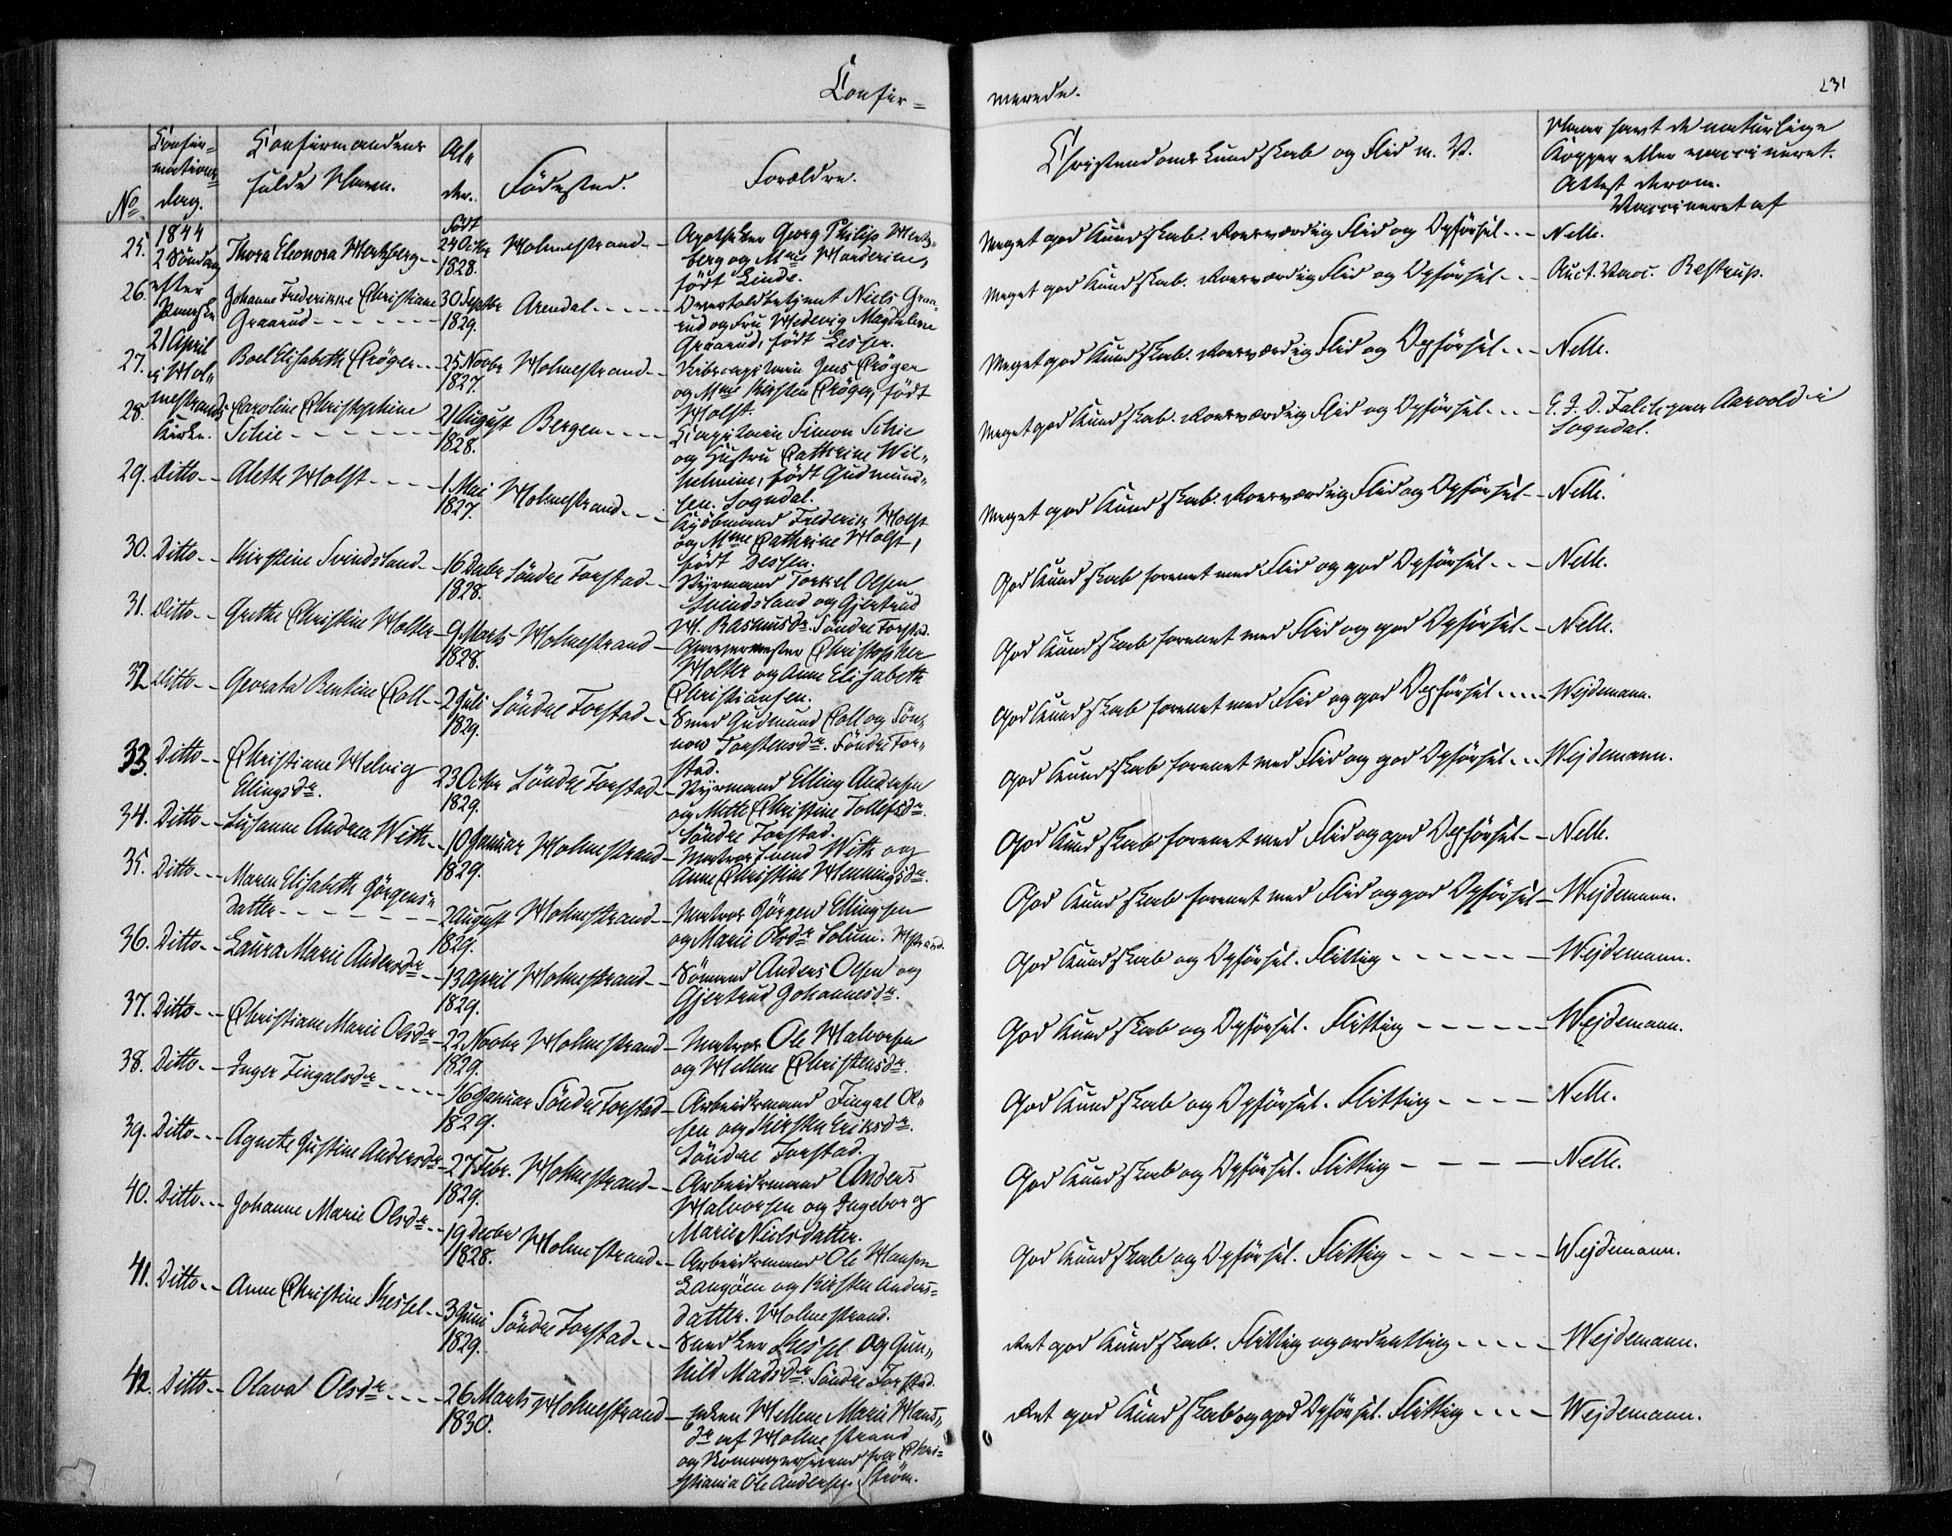 Confir=
merede.
231
No
Confir=
mations
dag.
Confirmandens
fulde Navn.
Al=
der.
Födested.
Forældre.
Christendoms Kundskab og Flid m. V.
Naar havt de naturlige
Kopper eller vaccineret.
Attest derom.
Vaccineret af
1844
2 Söndag
efter
Paaske
21 April
i Hol=
mestrands
Kirke.
25. Thora Eleonora Hertzberg -- Født 24 Octbr 1828. Holmestrand --
Apotheker Georg Philip Hertz=
berg og Mme
født Linde.
Meget god Kundskab. Roesværdig Flid og Opførsel --- Nelle.
26. Johanne Frederikke Christiane
Graarud ------ 30 Septbr 1829. Arendal ----
Overtoldbetjent Niels Graa=
rud og Fru Hedevig Magdalene
Graarud, født Lessen.
Meget god Kundskab. Roesværdig Flid og Opförsel -- Auct. Vacc. Restrup.
27. Boel Elisabeth Cröger -- 25 Novbr 1827. Holmestrand --
Skibscapitain Jens Cröger
og Mme Kirsten Cröger, født
Holst.
Meget god Kundskab. Roesværdig Flid og Opförsel -- Nelle.
28. Caroline Christophine
Schie ------ 21 August 1828. Bergen ----
Capitain Simon Schie
og Hustru Cathrine Wil=
helmine, født Gudmund=
sen. Sogndal.
Meget god Kundskab. Roesværdig Flid og Opförsel --- Aarvold i
Sogndal.
29. Ditto -- Alette Holst ---- 1 Mai 1827. Holmestrand ---
Kjöbmand Frederik Holst
og Mme Cathrine Holst,
født Dessen.
Meget god Kundskab. Roesværdig Flid og Opförsel -- Nelle.
30. Ditto -- Kirstine Svindsland -- 16 Decbr 1828. Söndre Forstad --
Styrmand Torkel Olsen
Svindsland og Gjertrud
M. Rasmusdr. Söndre Forstad.
God Kundskab forenet med Flid og god Opförsel --- Nelle.
31. Ditto -- Grethe Christine Holter -- 9 Marts 1828. Holmestrand --
Garvermester Christopher
Holter og Anne Elisabeth
Christiansen.
God Kundskab forenet med Flid og god Opförsel -- Nelle.
32 Ditto -- Georata Bentine Coll -- 2 Juli 1829. Söndre Forstad --
Smed Gudmund Coll og Sön=
now Torstensdr. Söndre For=
stad.
God Kundskab forenet med Flid og god Opförsel ---- Wejdemann.
33. Ditto -- Christiane Helvig
Ellingsdr. 23 Octbr 1829. Söndre Forstad --
Styrmand Elling Andersen
og Mette Christine Tollefsdr.
Söndre Forstad.
God Kundskab forenet med Flid og god Opförsel --- Wejdemann.
34. Ditto -- Susanne Andrea Weth -- 10 Januar 1829. Holmestrand --
Matros Svend Weth og
Anne Christine Henningsdr.
God Kundskab forenet med Flid og god Opförsel -- Nelle.
35. Ditto --- Maren Elisabeth Jörgens=
datter ------ 2 August 1829. Holmestrand --
Matros Jörgen Ellingsen
og Marie Olsdr Solum. Hstrand.
God Kundskab forenet med Flid og god Opförsel -- Wejdemann.
36. Ditto -- Laura Marie Andersdr -- 13 April 1829. Holmestrand --
Sömand Anders Olsen og
Gjertrud Johannesdr.
God Kundskab og Opförsel. Flittig ------ Wejdemann.
37. Ditto --- Christiane Marie Olsdr -- 22 Novbr 1829. Holmestrand --
Matros Ole Halvorsen
og Hellene Christensdr.
God Kundskab og Opförsel. Flittig ----- Wejdemann.
38. Ditto -- Inger Fingalsdr ----- 16 Januar 1829. Söndre Forstad --
Arbeidsmand Fingal Ol=
sen og Kirsten Eriksdr.
Söndre Forstad.
God Kundskab og Opförsel. Flittig ---- Nelle.
39. Ditto --- Agnete Justine Andersdr -- 27 Febr. 1829. Holmestrand --
Arbeidsmand Anders
Halvorsen og Ingeborg
Marie Nielsdatter.
God Kundskab og Opförsel. Flittig ---- Nelle.
40. Ditto --- Johanne Marie Olsdr -- 19 Decbr 1828. Holmestrand --
Arbeidsmand Ole Hansen
Langöen og Kirsten Anders=
datter. Holmestrand.
God Kundskab og Opförsel. Flittig ----- Wejdemann.
41. Ditto -- Anne Christine Kessel -- 3 Juni 1829. Söndre Forstad ---
Snedker Kessel og Gun=
hild Madsdr. Söndre Forstad.
Ret god Kundskab. Flittig og ordentlig ---- Wejdemann.
42. Ditto -- Olava Olsdr ---- 26 Marts 1830. Holmestrand --
Enken Hellene Marie Hans=
dr af Holmestrand
og fra Chri=
stiania Ole Andersen Ström.
Ret god Kundskab og god Opförsel. Flittig --- Wejdemann.